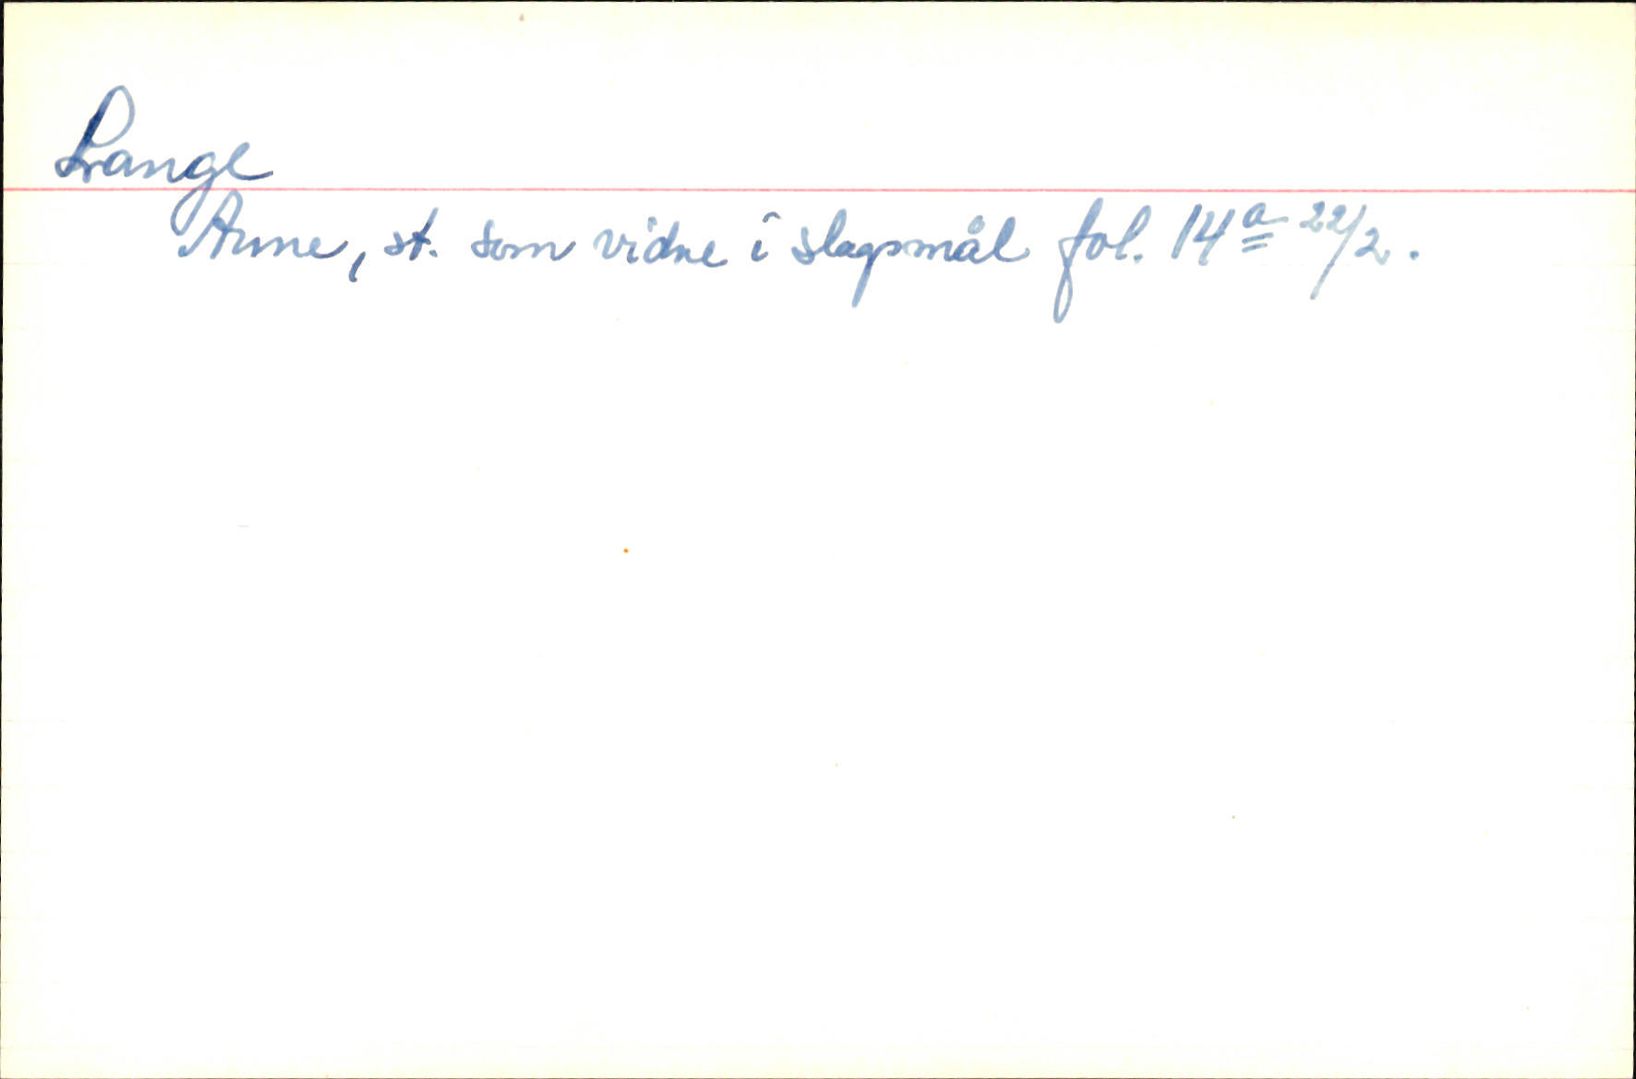 Lange
Anne, st. som vidne i slagsmål fol. 14a 22/2.